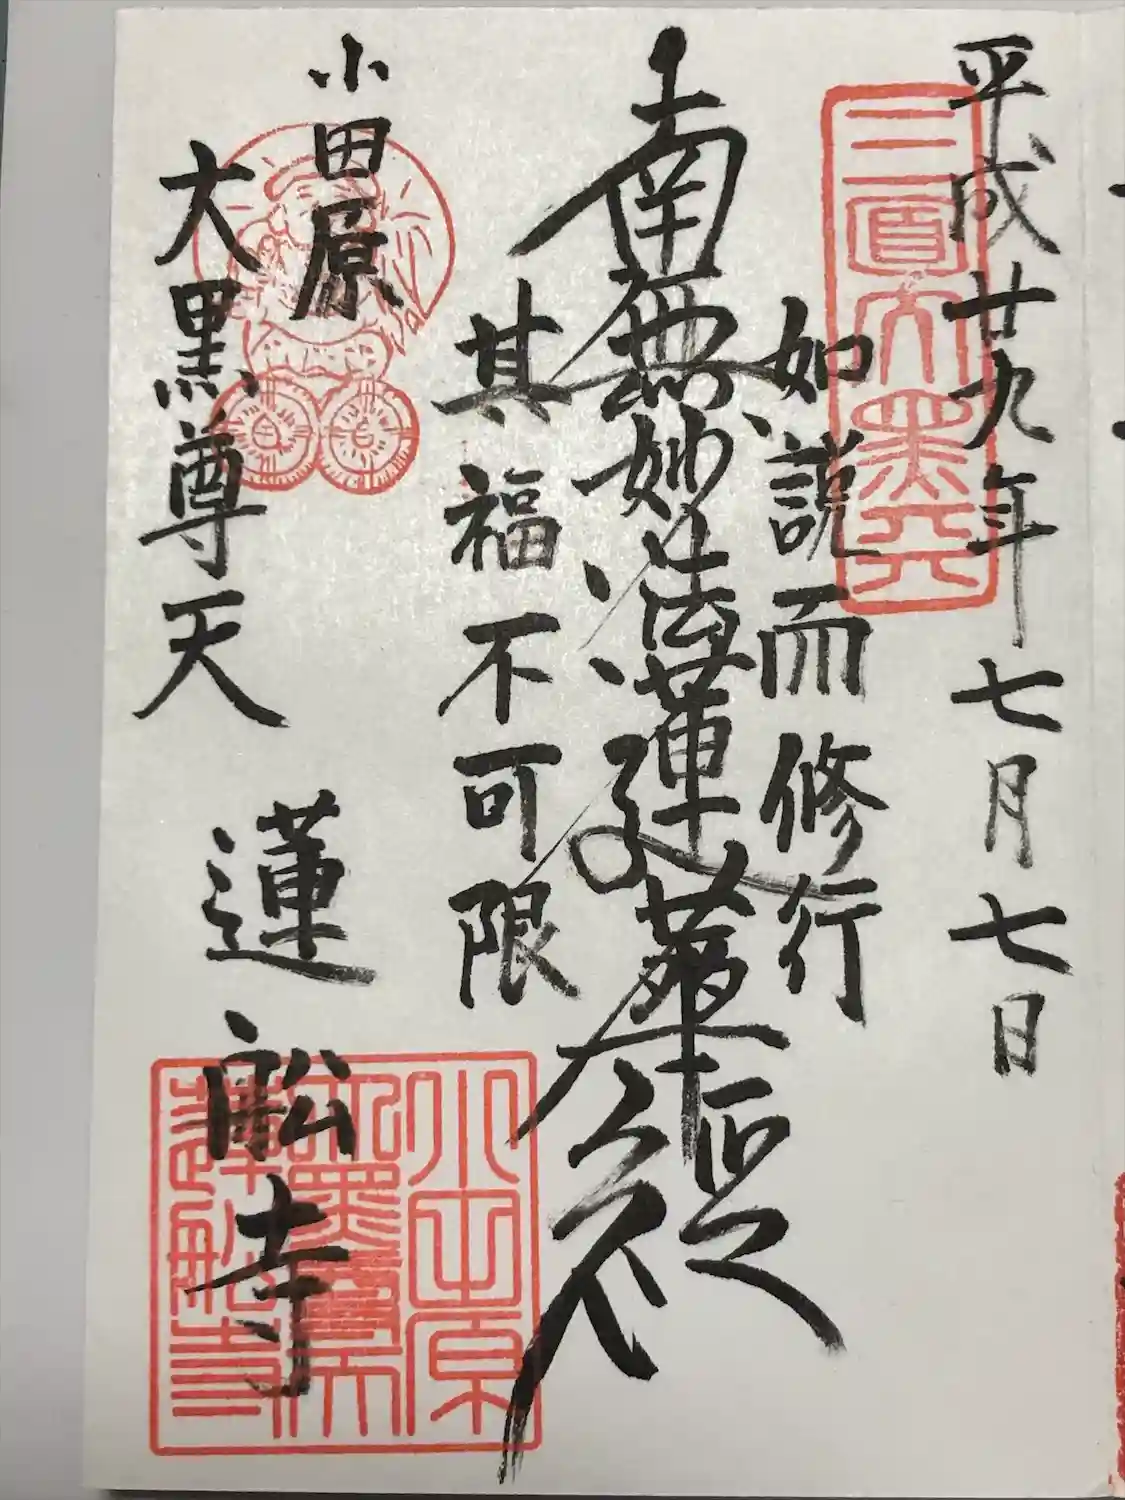 平成廿九年七月七日
三面大黒天
如説而修行
南無妙法蓮華経
其福不可限
小田原
大黒尊天
蓮船寺
小田原
大黒尊天
蓮船寺